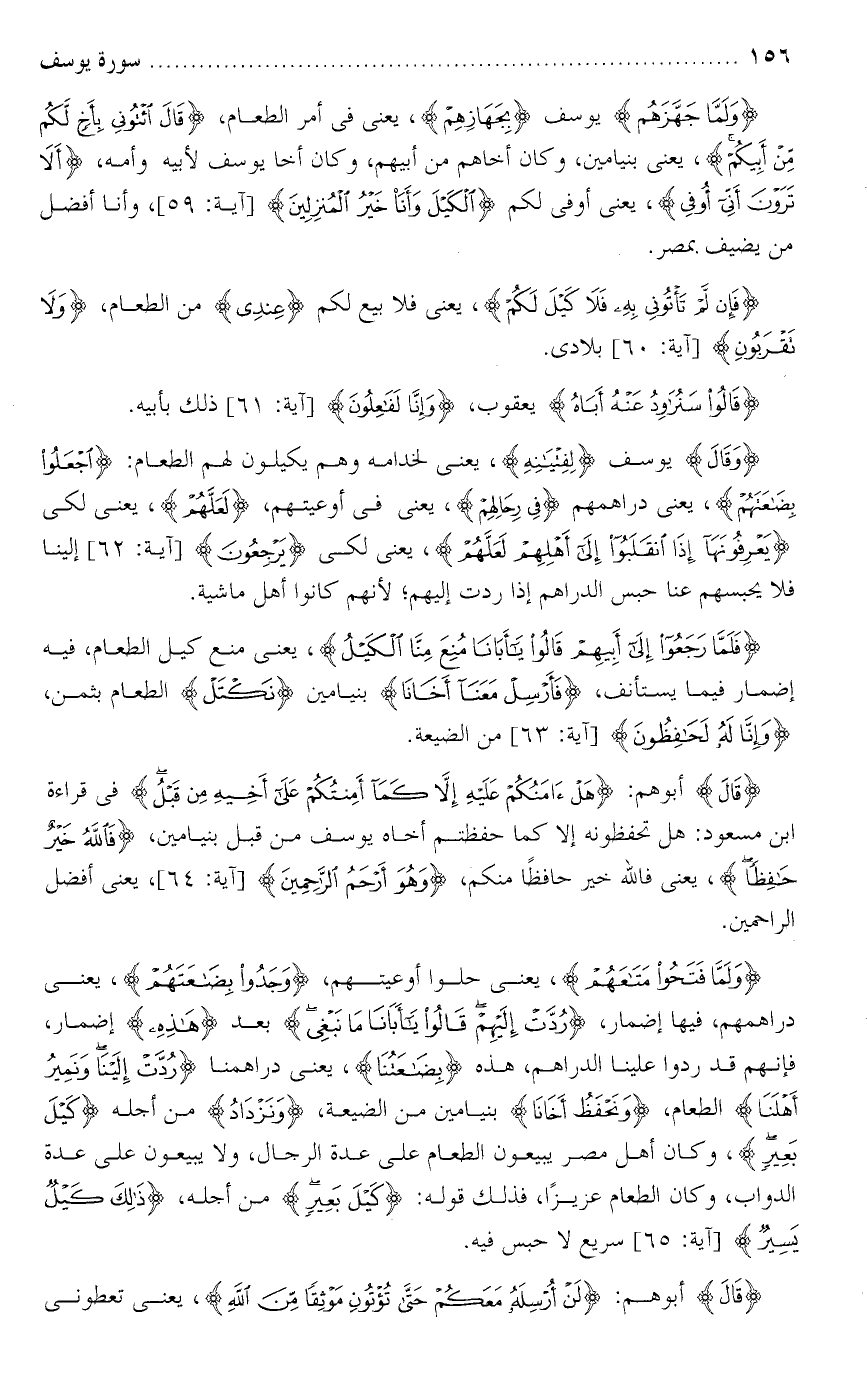 ١٥٦ ........................................................................ سورة يوسف
﴿وَلَمَّا جَهَّزَهُم﴾ يوسف ﴿بِجَهَازِهِمْ﴾، يعنى فى أمر الطعام، ﴿قَالَ ٱئْتُونِى بِأَخٍ لَّكُم
مِّنْ أَبِيكُمْ ۚ﴾، يعنى بنيامين، وكان أخاهم من أبيهم، وكان أخا يوسف لأبيه وأمه، ﴿أَلَا
تَرَوْنَ أَنِّىٓ أُوفِى﴾، يعنى أوفى لكم ﴿ٱلْكَيْلَ وَأَنَا۠ خَيْرُ ٱلْمُنزِلِينَ﴾ [آية: ٥٩]، وأنا أفضل
من يضيف بمصر.
﴿فَإِن لَّمْ تَأْتُونِى بِهِۦ فَلَا كَيْلَ لَكُمْ﴾، يعنى فلا بيع لكم ﴿عِندِى﴾ من الطعام، ﴿وَلَا
تَقْرَبُونِ﴾ [آية: ٦٠] بلادى.
﴿قَالُوا۟ سَنُرَٰوِدُ عَنْهُ أَبَاهُ﴾ يعقوب، ﴿وَإِنَّا لَفَٰعِلُونَ﴾ [آية: ٦١] ذلك بأبيه.
﴿وَقَالَ﴾ يوسف ﴿لِفِتْيَٰنِهِ﴾، يعنى لخدامه وهم يكيلون لهم الطعام: ﴿ٱجْعَلُوا۟
بِضَٰعَتَهُمْ﴾، يعنى دراهمهم ﴿فِى رِحَالِهِمْ﴾، يعنى فى أوعيتهم، ﴿لَعَلَّهُمْ﴾، يعنى لكى
﴿يَعْرِفُونَهَآ إِذَا ٱنقَلَبُوٓا۟ إِلَىٰٓ أَهْلِهِمْ لَعَلَّهُمْ﴾، يعنى لكسى ﴿يَرْجِعُونَ﴾ [آية: ٦٢] إلينا
فلا يحبسهم عنا حبس الدراهم إذا ردت إليهم؛ لأنهم كانوا أهل ماشية.
﴿فَلَمَّا رَجَعُوٓا۟ إِلَىٰٓ أَبِيهِمْ قَالُوا۟ يَٰٓأَبَانَا مُنِعَ مِنَّا ٱلْكَيْلُ﴾، يعنى منع كيل الطعام، فيه
إضمار فيما يستأنف، ﴿فَأَرْسِلْ مَعَنَآ أَخَانَا﴾ بنيامين ﴿نَكْتَلْ﴾ الطعام بثمن،
﴿وَإِنَّا لَهُۥ لَحَٰفِظُونَ﴾ [آية: ٦٣] من الضيعة.
﴿قَالَ﴾ أبوهم: ﴿هَلْ ءَامَنُكُمْ عَلَيْهِ إِلَّا كَمَآ أَمِنتُكُمْ عَلَىٰٓ أَخِيهِ مِن قَبْلُ ۖ﴾ فى قراءة
ابن مسعود: هل تحفظونه إلا كما حفظتم أخاه يوسف من قبل بنيامين، ﴿فَٱللَّهُ خَيْرٌ
حَٰفِظًا ۖ﴾، يعنى فالله خير حافظًا منكم، ﴿وَهُوَ أَرْحَمُ ٱلرَّٰحِمِينَ﴾ [آية: ٦٤]، يعنى أفضل
الراحمين.
﴿وَلَمَّا فَتَحُوا۟ مَتَٰعَهُمْ﴾، يعنى حلوا أوعيتهم، ﴿وَجَدُوا۟ بِضَٰعَتَهُمْ﴾، يعنى
دراهمهم، فيها إضمار، ﴿رُدَّتْ إِلَيْهِمْ ۖ قَالُوا۟ يَٰٓأَبَانَا مَا نَبْغِى ۖ﴾ بعد ﴿هَٰذِهِۦ﴾ إضمار،
فإنهم قد ردوا علينا الدراهم، هذه ﴿بِضَٰعَتُنَا﴾، يعنى دراهمنا ﴿رُدَّتْ إِلَيْنَا ۖ وَنَمِيرُ
أَهْلَنَا﴾ الطعام، ﴿وَنَحْفَظُ أَخَانَا﴾ بنيامين من الضيعة، ﴿وَنَزْدَادُ﴾ من أجله ﴿كَيْلَ
بَعِيرٍ ۖ﴾، وكان أهل مصر يبيعون الطعام على عدة الرجال، ولا يبيعون على عدة
الدواب، وكان الطعام عزيزًا، فذلك قوله: ﴿كَيْلَ بَعِيرٍ ۖ﴾ من أجله، ﴿ذَٰلِكَ كَيْلٌ
يَسِيرٌ﴾ [آية: ٦٥] سريع لا حبس فيه.
﴿قَالَ﴾ أبوهم: ﴿لَنْ أُرْسِلَهُۥ مَعَكُمْ حَتَّىٰ تُؤْتُونِ مَوْثِقًا مِّنَ ٱللَّهِ﴾، يعنى تعطونى